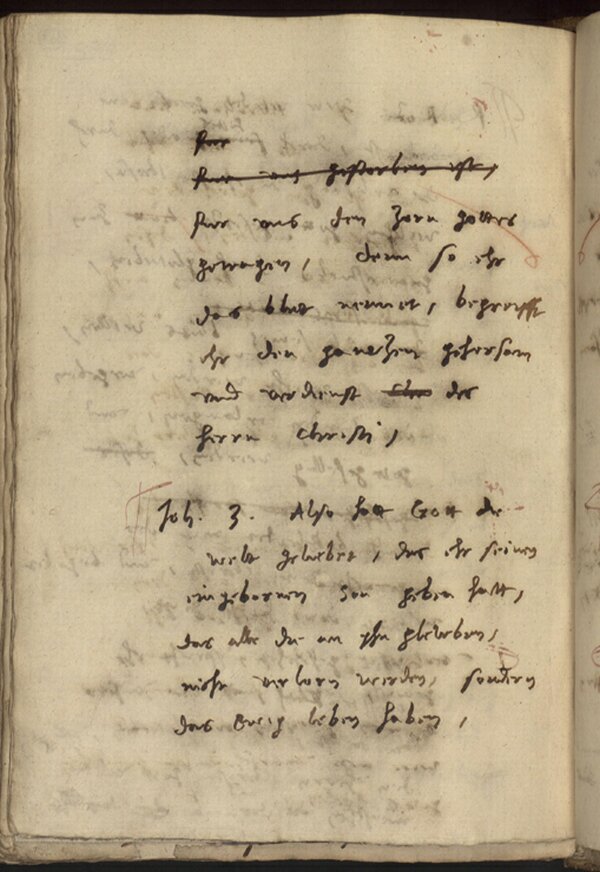 fur
fur uns gestorben ist,
fur uns den zorn gottes
getragen, denn so ehr
das blut nennet, begreyfft
ehr den gantzen gehorsam
und verdienst des
herrn Christi,
Joh. 3. Also hatt Gott die
welt geliebet, das ehr seinen
eingebornen Son geben hatt,
das alle die an yhn gleuben,
nicht verlorn werden, sondern
das Ewig leben haben,